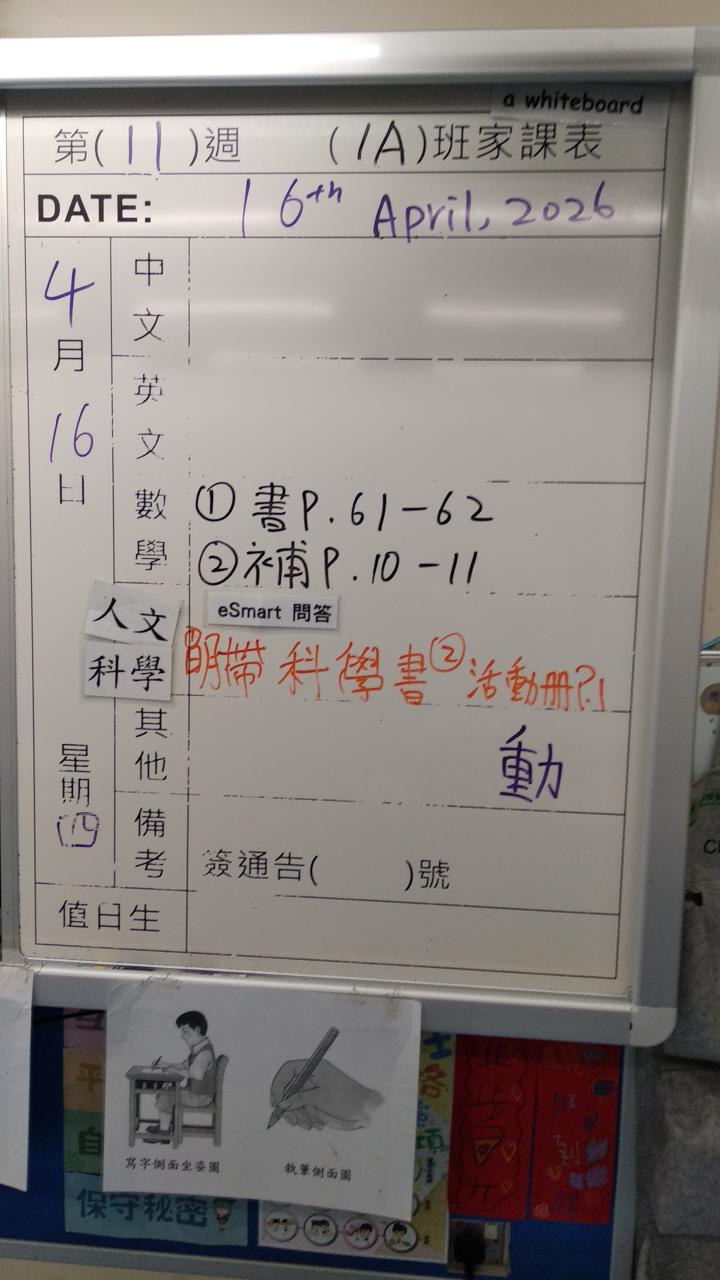 a whiteboard
第(11)週 (1A)班家課表
DATE: 16th April, 2026
4月16日
星期四
中文
英文
數學
① 書P.61-62
② 補P.10-11
人文
科學
eSmart 問答
明帶科學書② 活動册?!
其他
動
備考
簽通告( )號
值日生
寫字側面坐姿圖
執筆側面圖
保守秘密